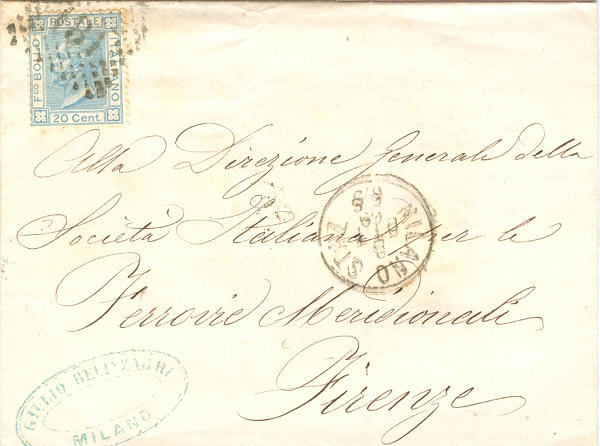 POSTALE
Fco BOLLO
ITALIANO
20 Cent.
Alla Direzione Generale della
Società Italiana per le
Ferrovie Meridionali
Firenze
MILANO STAZ
GIULIO BELINZAGHI
MILANO